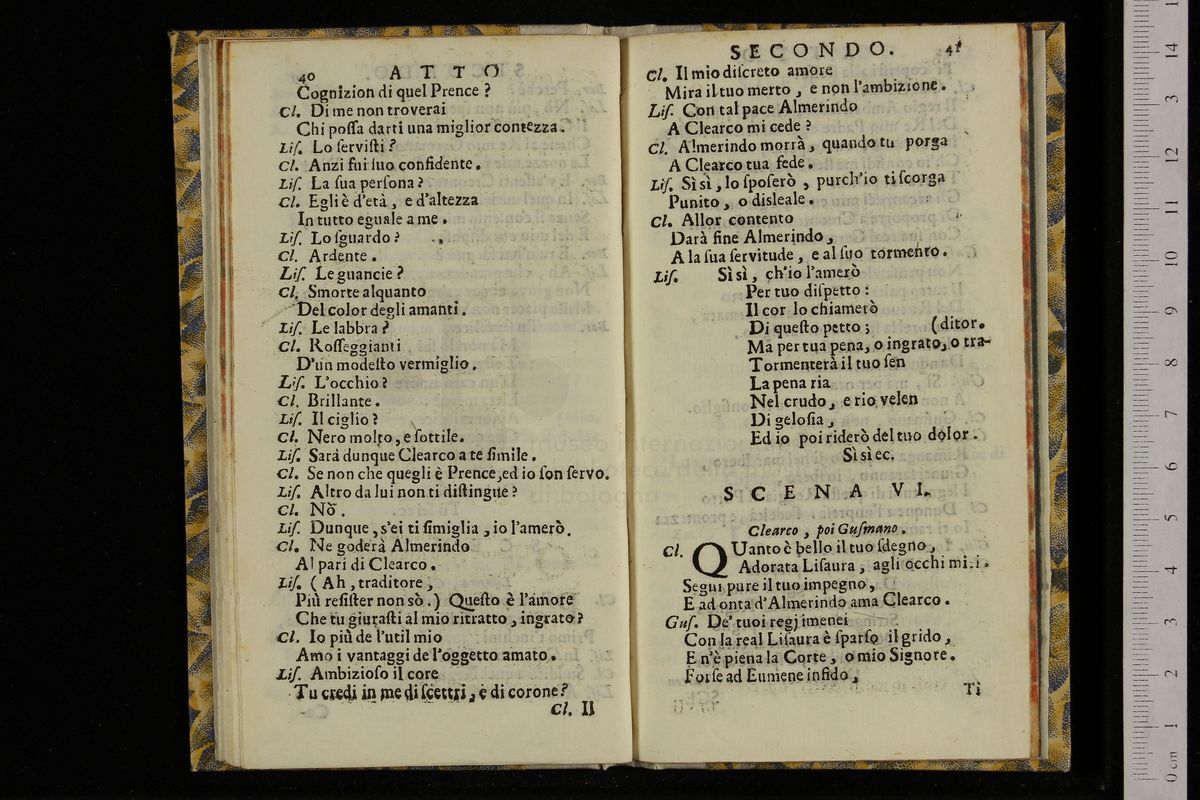 40 ATTO
Cognizion di quel Prence ?
Cl. Di me non troverai
Chi poſſa darti una miglior contezza.
Liſ. Lo ſerviſti ?
Cl. Anzi fui ſuo confidente.
Liſ. La ſua perſona ?
Cl. Egli è d'età, e d'altezza
In tutto eguale a me.
Liſ. Lo ſguardo ?
Cl. Ardente.
Liſ. Le guancie ?
Cl. Smorte alquanto
Del color degli amanti.
Liſ. Le labbra ?
Cl. Roſſeggianti
D'un modeſto vermiglio.
Liſ. L'occhio ?
Cl. Brillante.
Liſ. Il ciglio ?
Cl. Nero molto, e ſottile.
Liſ. Sarà dunque Clearco a te ſimile.
Cl. Se non che quegli è Prence, ed io ſon ſervo.
Liſ. Altro da lui non ti diſtingue ?
Cl. Nò.
Liſ. Dunque, s'ei ti ſimiglia, io l'amerò.
Cl. Ne goderà Almerindo
Al pari di Clearco.
Liſ. ( Ah, traditore,
Più reſiſter non sò. ) Queſto è l'amore
Che tu giuraſti al mio ritratto, ingrato ?
Cl. Io più de l'util mio
Amo i vantaggi de l'oggetto amato.
Liſ. Ambizioſo il core
Tu credi in me di ſcettri, e di corone ?
Cl. Il
SECONDO. 41
Cl. Il mio diſcreto amore
Mira il tuo merto, e non l'ambizione.
Liſ. Con tal pace Almerindo
A Clearco mi cede ?
Cl. Almerindo morrà, quando tu porga
A Clearco tua fede.
Liſ. Sì sì, lo ſpoſerò, purch'io ti ſcorga
Punito, o disleale.
Cl. Allor contento
Darà fine Almerindo,
A la ſua ſervitude, e al ſuo tormento.
Liſ. Sì sì, ch'io l'amerò
Per tuo diſpetto :
Il cor lo chiamerò
Di queſto petto ; (ditor.
Ma per tua pena, o ingrato, o tra-
Tormenterà il tuo ſen
La pena ria
Nel crudo, e rio velen
Di geloſia,
Ed io poi riderò del tuo dolor.
Sì sì ec.
SCENA VI.
Clearco, poi Guſmano.
Cl. QUanto è bello il tuo ſdegno,
Adorata Liſaura, agli occhi miei.
Segui pure il tuo impegno,
E ad onta d'Almerindo ama Clearco.
Guſ. De' tuoi regj imenei
Con la real Liſaura è ſparſo il grido,
E n'è piena la Corte, o mio Signore.
Forſe ad Eumene infido,
Ti
museo internazionale
biblioteca della musica
di bologna